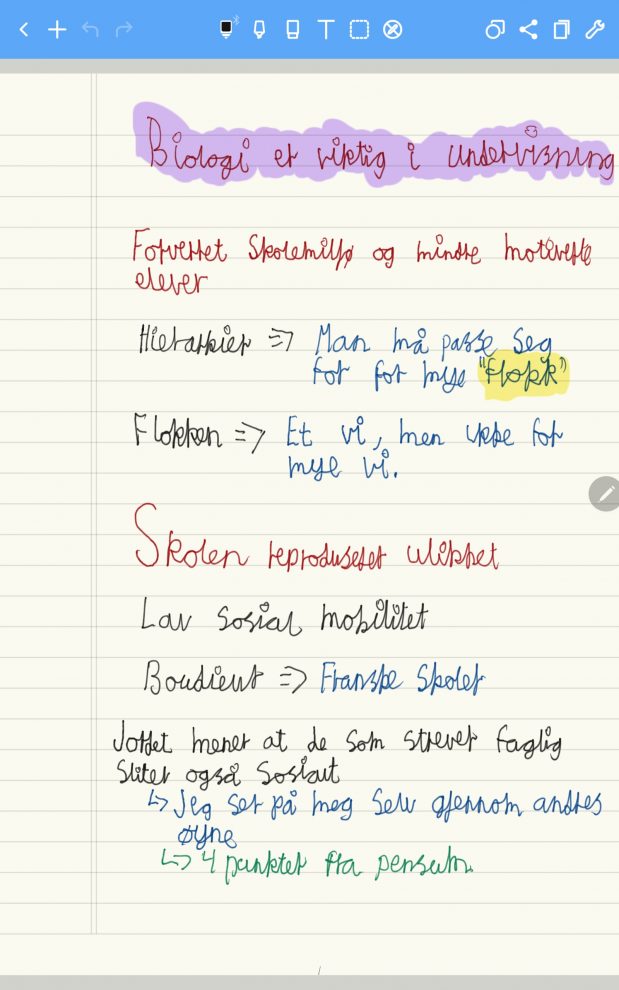 Biologi er viktig i undervisning
Forverret Skolemiljø og mindre motiverte
elever
Hierarkier => Man må passe seg
for for mye "flokk"
Flokken => Et vi, men ikke for
mye vi.
Skolen reproduserer ulikhet
Lav sosial mobilitet
Boudieut => Franske Skoler
Jordet mener at de som strever faglig
sliter også sosialt
↳ Jeg ser på meg selv gjennom andres
øyne
↳ 4 punkter fra pensum.